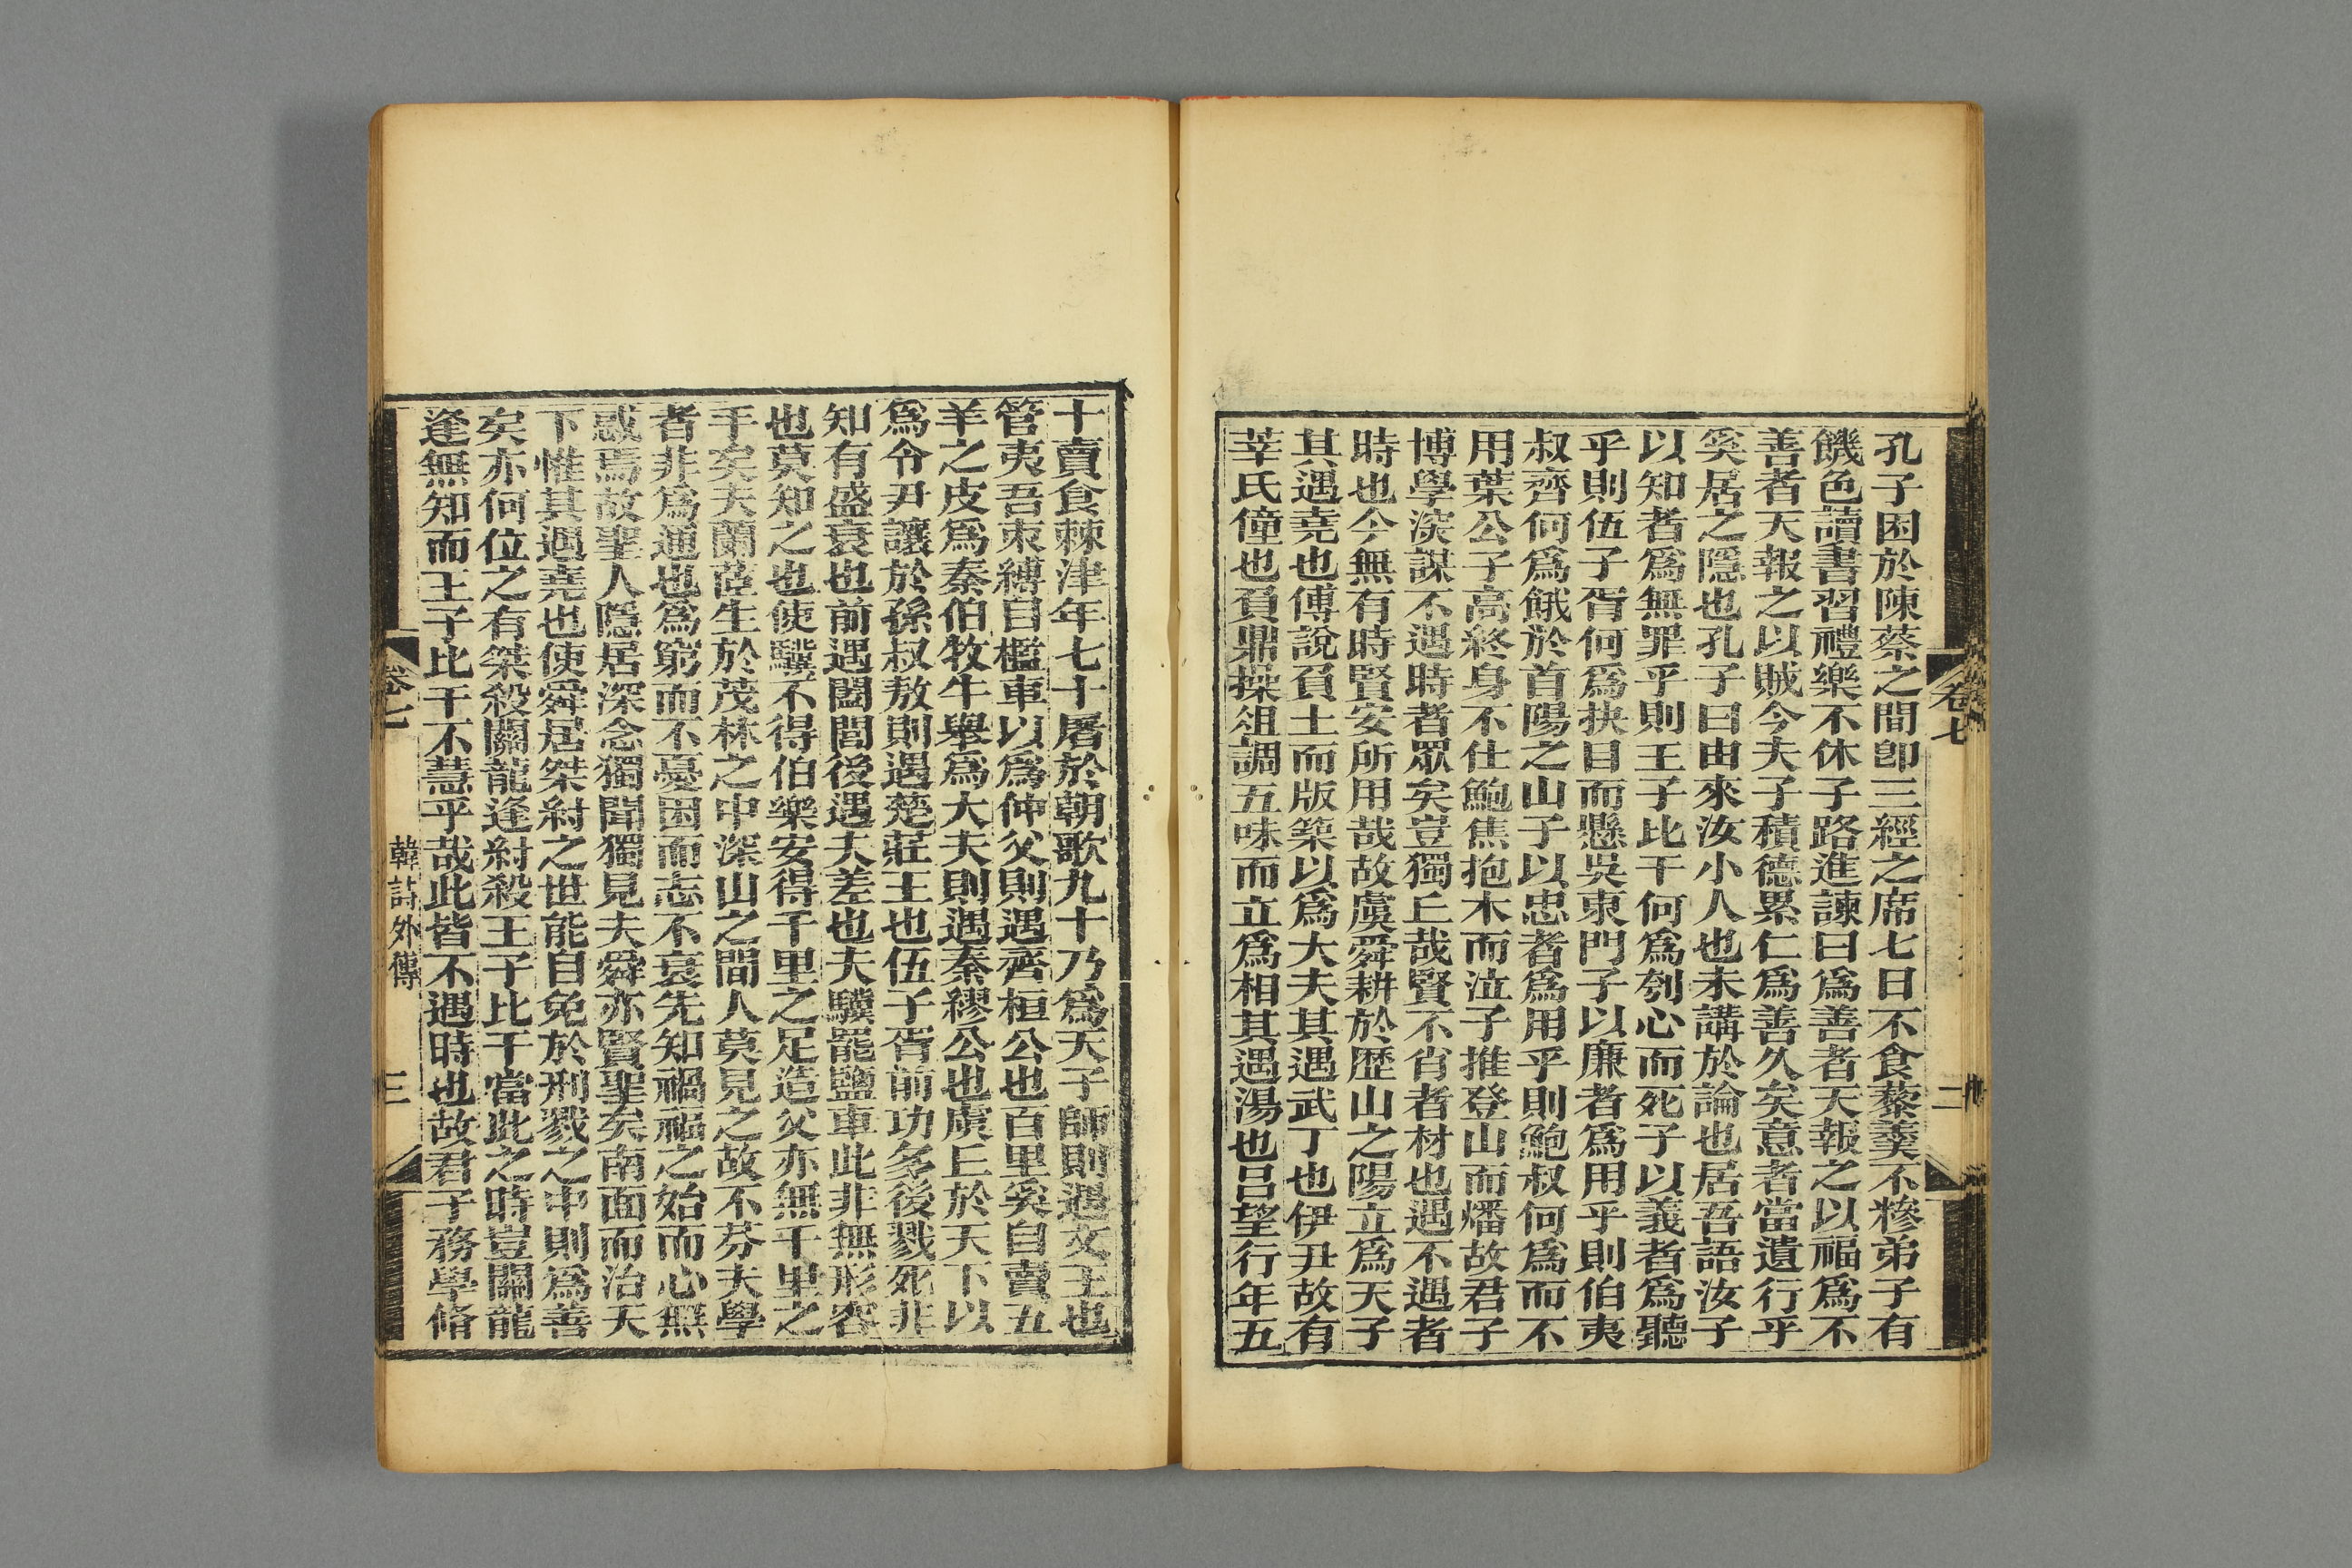 孔子困於陳蔡之間卽三經之席七日不食藜羹不糝弟子有
饑色讀書習禮樂不休子路進諫曰爲善者天報之以福爲不
善者天報之以賊今夫子積德累仁爲善久矣意者當遺行乎
奚居之隱也孔子曰由來汝小人也未講於論也居吾語汝子
以知者爲無罪乎則王子比干何爲刳心而死子以義者爲聽
乎則伍子胥何爲抉目而懸吳東門子以廉者爲用乎則伯夷
叔齊何爲餓於首陽之山子以忠者爲用乎則鮑叔何爲而不
用葉公子高終身不仕鮑焦抱木而泣子推登山而燔故君子
博學深謀不遇時者眾矣豈獨丘哉賢不肖者材也遇不遇者
時也今無有時賢安所用哉故虞舜耕於歷山之陽立爲天子
其遇堯也傅說負土而版築以爲大夫其遇武丁也伊尹故有
莘氏僮也負鼎操俎調五味而立爲相其遇湯也呂望行年五
卷七
二
十賣食棘津年七十屠於朝歌九十乃爲天子師則遇文王也
管夷吾束縛自檻車以爲仲父則遇齊桓公也百里奚自賣五
羊之皮爲秦伯牧牛舉爲大夫則遇秦繆公也虞丘於天下以
爲令尹讓於孫叔敖則遇楚莊王也伍子胥前功多後戮死非
知有盛衰也前遇闔閭後遇夫差也夫驥罷鹽車此非無形容
也莫知之也使驥不得伯樂安得千里之足造父亦無千里之
手矣夫蘭茝生於茂林之中深山之間人莫見之故不芬夫學
者非爲通也爲窮而不憂困而志不衰先知禍福之始而心無
惑焉故聖人隱居深念獨聞獨見夫舜亦賢聖矣南面而治天
下惟其遇堯也使舜居桀紂之世能自免於刑戮之中則爲善
矣亦何位之有桀殺關龍逢紂殺王子比干當此之時豈關龍
逢無知而王子比干不慧乎哉此皆不遇時也故君子務學脩
卷七
韓詩外傳
三